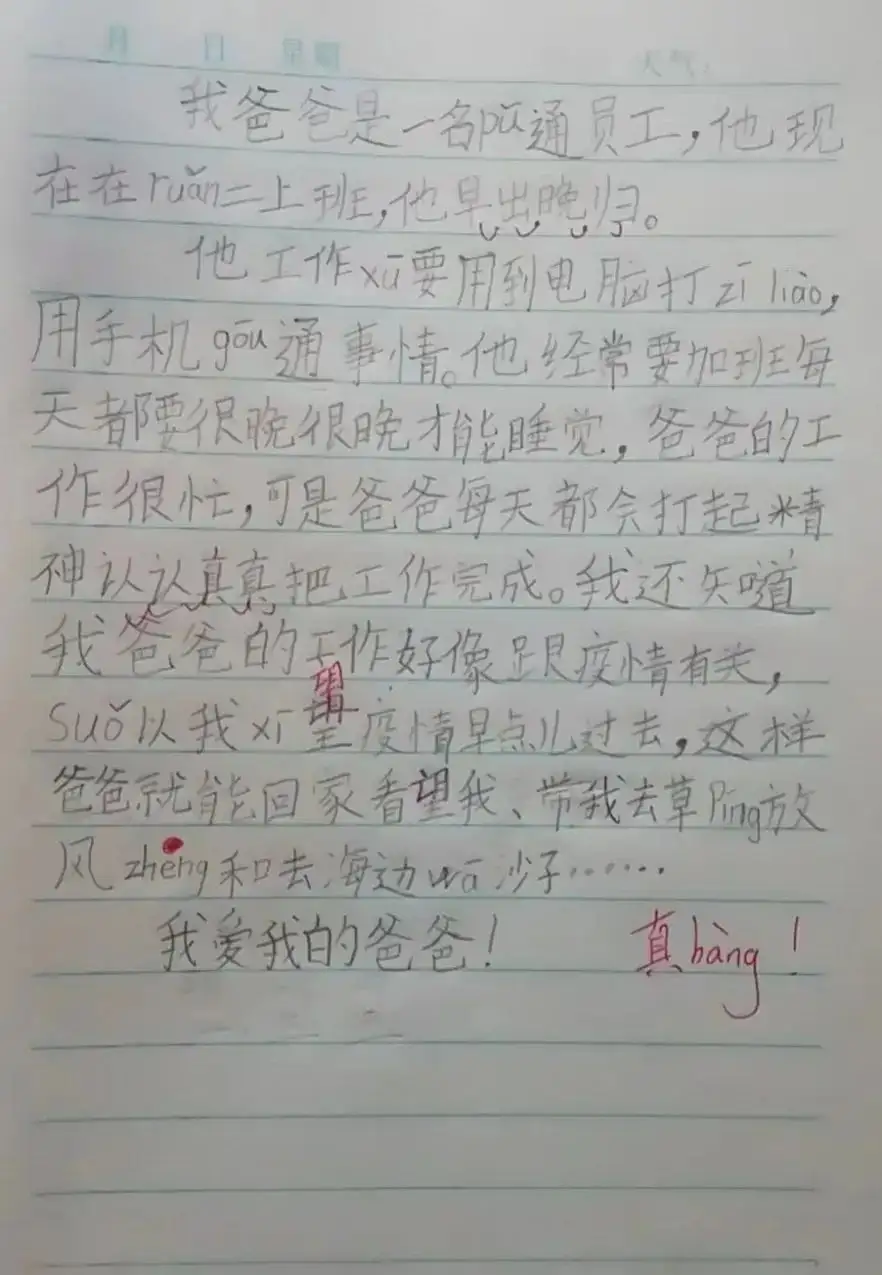 月 日 星期 天气:
我爸爸是一名pǔ通员工,他现
在在ruǎn二上班,他早出晚归。
他工作xū要用到电脑打zī liào,
用手机gōu通事情。他经常要加班每
天都要很晚很晚才能睡觉,爸爸的工
作很忙,可是爸爸每天都会打起精
神认认真真把工作完成。我还知道
我爸爸的工作好像跟疫情有关,
suǒ以我xī望疫情早点儿过去,这样
爸爸就能回家看望我、带我去草Píng放
风zhēng和去海边wā沙子······
我爱我的爸爸!
真bàng!